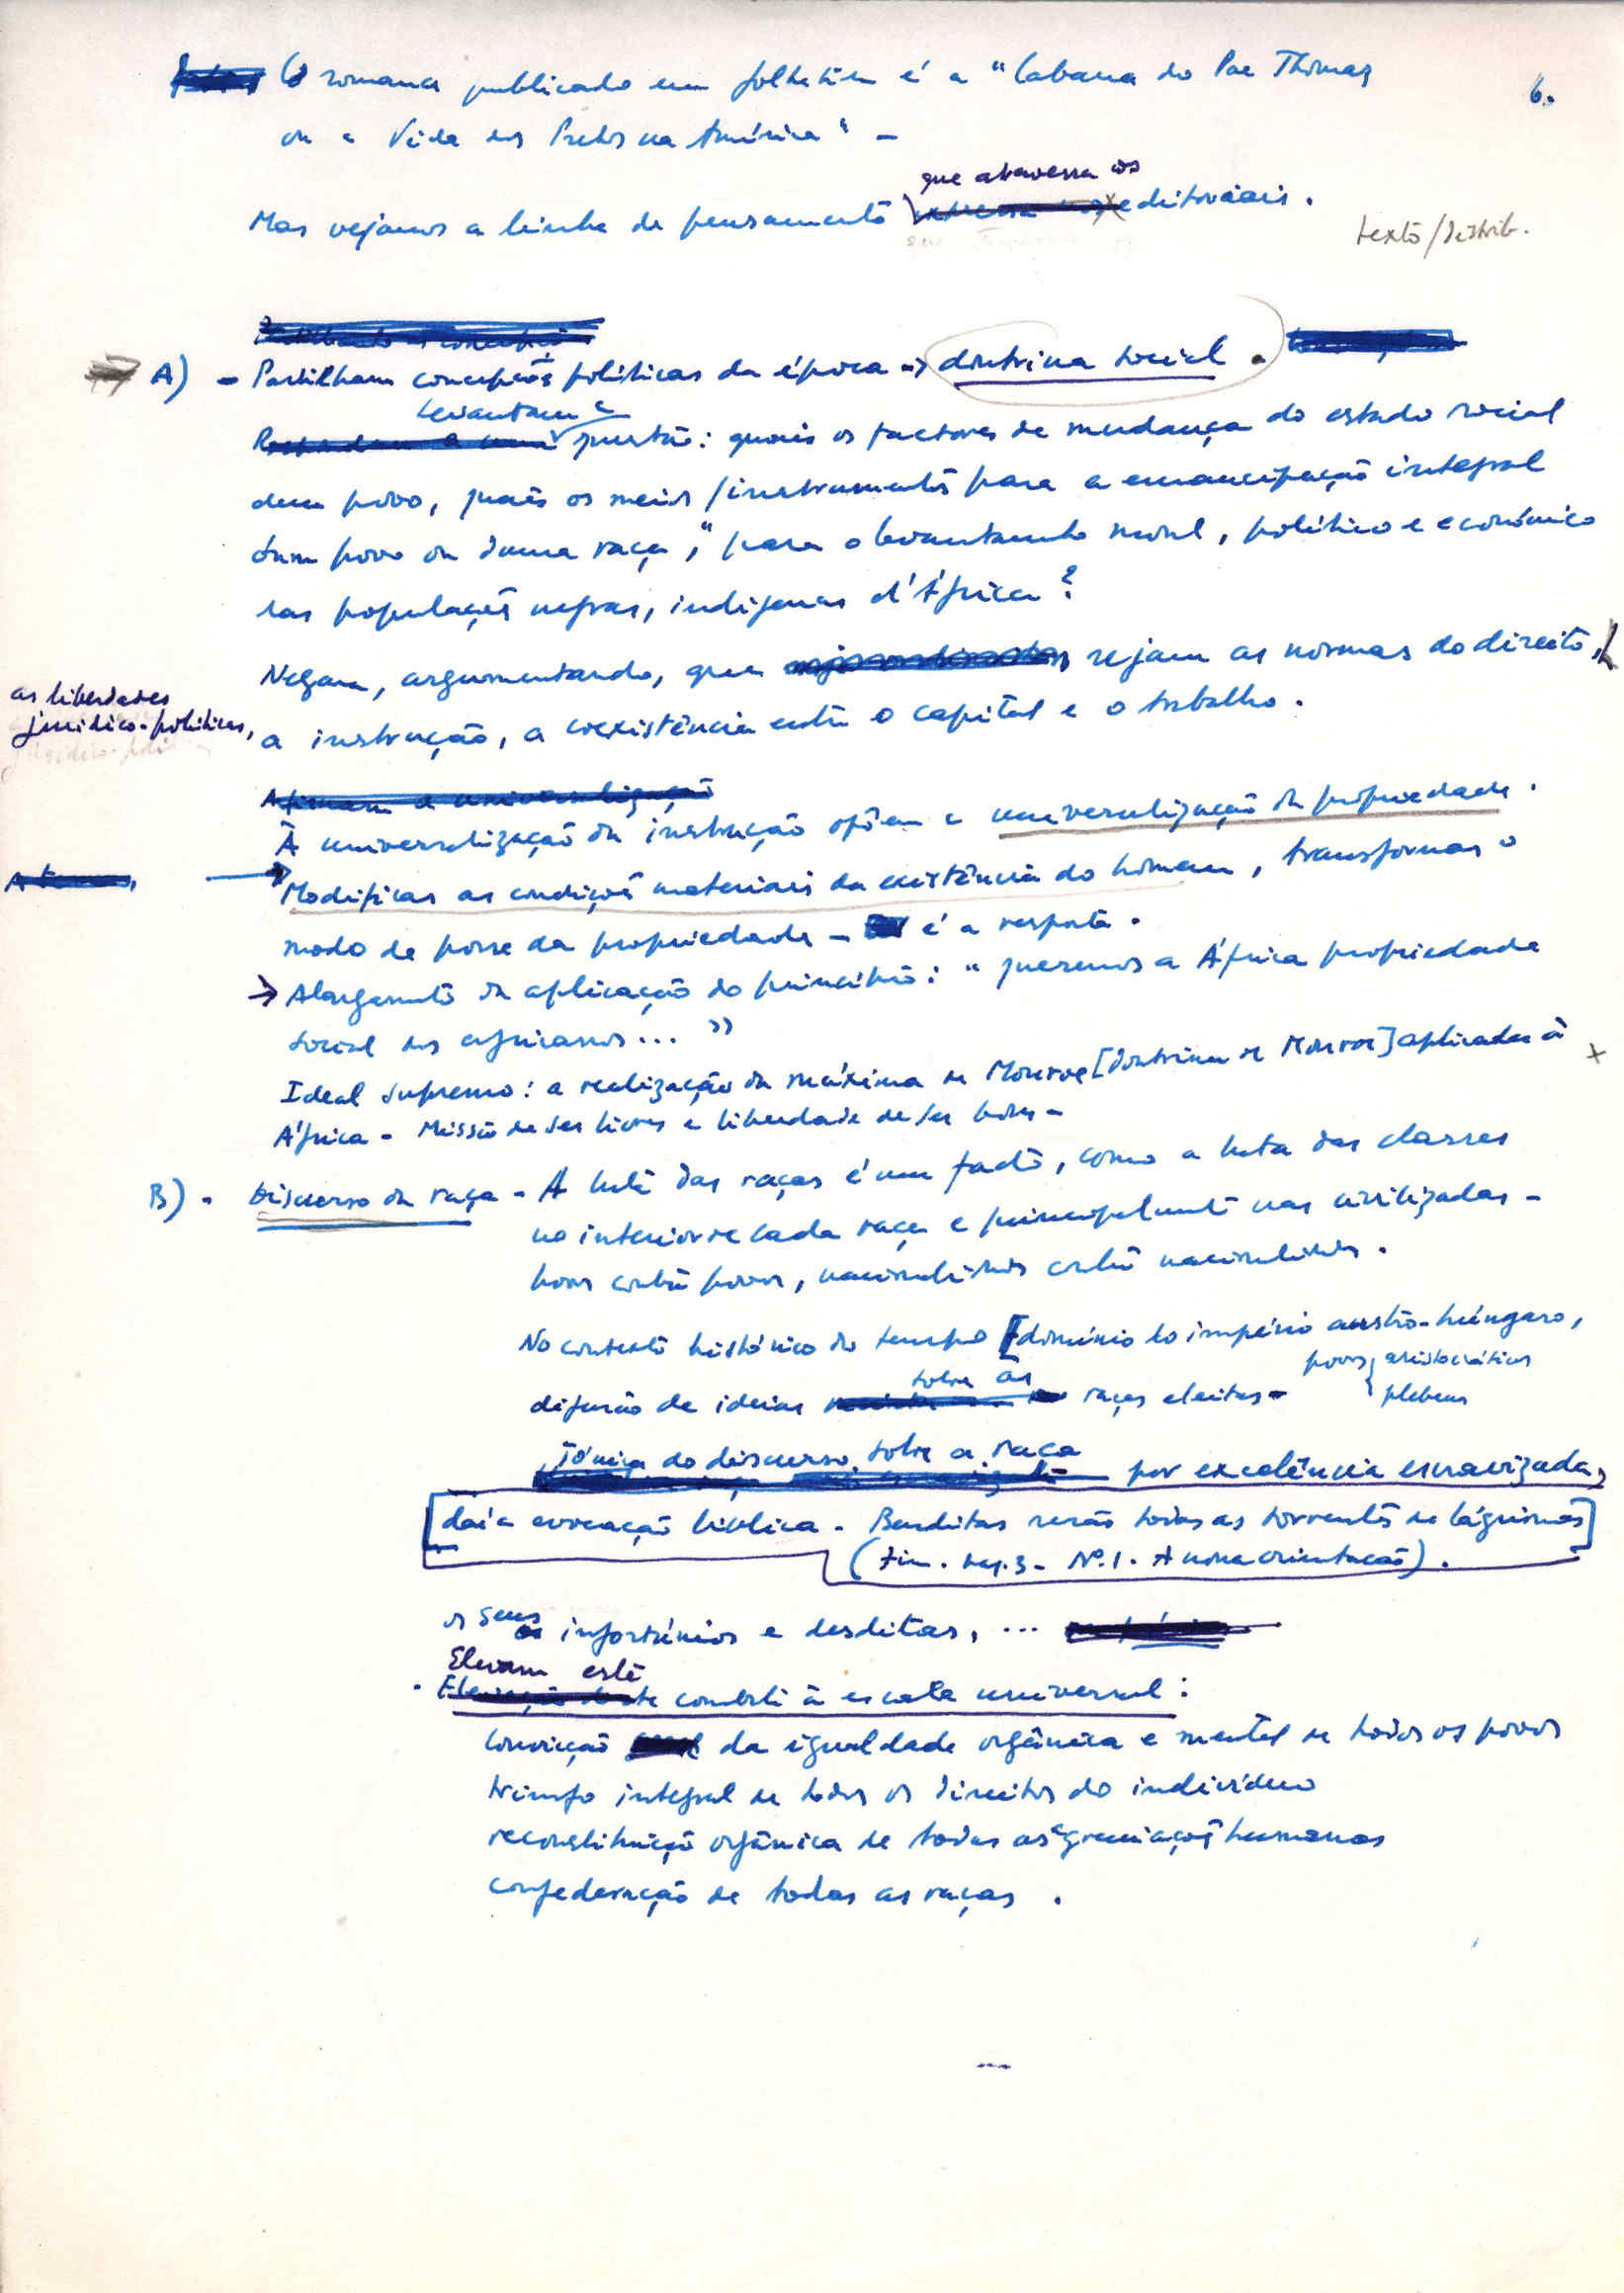 6.
O romance publicado em folhetim é a "Cabana do Pae Thomaz
ou a Vida dos Pretos na América" -
que atravessa os
Mas vejamos a linha de pensamento editoriais.
texto/distrib.
A) - Partilham concepções políticas da época -> doutrina social.
Levantam a
questão: quais os factores de mudança do estado social
dum povo, quais os meios/instrumentos para a emancipação integral
dum povo ou duma raça, "para o levantamento moral, político e económico
das populações negras, indígenas d'África?
Negam, argumentando, que sejam as normas do direito,
as liberdades
jurídico-políticas,
a instrução, a coexistência entre o capital e o trabalho.
À universalização da instrução opõem a universalização da propriedade.
Modificar as condições materiais da existência do homem, transformar o
modo de posse da propriedade - é a resposta.
-> Alargamento da aplicação do princípio: "queremos a África propriedade
social dos africanos..."
Ideal supremo: a realização da máxima de Monroe [doutrina de Monroe] aplicada à
África - Missão de ser livres e liberdade de ser
B) - Discurso da raça - A luta das raças é um facto, como a luta das classes
no interior de cada raça e principalmente nas civilizadas -
povos contra povos, nacionalidades contra nacionalidades.
No contexto histórico do tempo [domínio do império austro-húngaro,
difusão de ideias sobre as raças eleitas - povos { aristocráticos
plebeus
Tónica do discurso sobre a raça por excelência escravizada,
[daí a evocação bíblica - Benditas serão todas as torrentes de lágrimas]
(Fim. pag. 3 - Nº. 1. A nova orientação).
os seus infortúnios e desditas, ...
Elevam este
combate à escala universal:
convicção da igualdade orgânica e mental de todos os povos
triunfo integral de todos os direitos do indivíduo
reconstituição orgânica de todas as agremiações humanas
confederação de todas as raças.